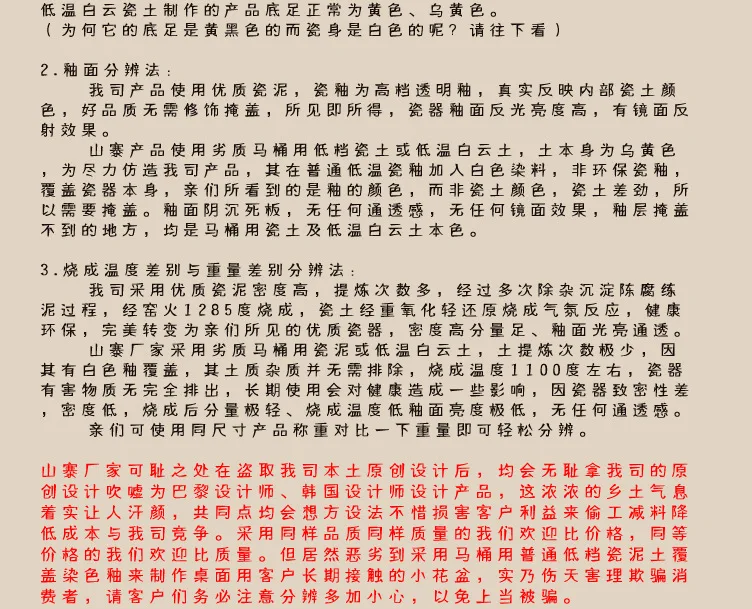 低温白云瓷土制作的产品底足正常为黄色、乌黄色。
（为何它的底足是黄黑色的而瓷身是白色的呢？请往下看）
2.釉面分辨法：
我司产品使用优质瓷泥，瓷釉为高档透明釉，真实反映内部瓷土颜
色，好品质无需修饰掩盖，所见即所得，瓷器釉面反光亮度高，有镜面反
射效果。
山寨产品使用劣质马桶用低档瓷土或低温白云土，土本身为乌黄色
，为尽力仿造我司产品，其在普通低温瓷釉加入白色染料，非环保瓷釉，
覆盖瓷器本身，亲们所看到的是釉的颜色，而非瓷土颜色，瓷土差劲，所
以需要掩盖。釉面阴沉死板，无任何通透感，无任何镜面效果，釉层掩盖
不到的地方，均是马桶用瓷土及低温白云土本色。
3.烧成温度差别与重量差别分辨法：
我司采用优质瓷泥密度高，提炼次数多，经过多次除杂沉淀陈腐练
泥过程，经窑火1285度烧成，瓷土经重氧化轻还原烧成气氛反应，健康
环保，完美转变为亲们所见的优质瓷器，密度高分量足、釉面光亮通透。
山寨厂家采用劣质马桶用瓷泥或低温白云土，土提炼次数极少，因
其有白色釉覆盖，其土质杂质并无需排除，烧成温度1100度左右，瓷器
有害物质无完全排出，长期使用会对健康造成一些影响，因瓷器致密性差
，密度低，烧成后分量极轻、烧成温度低釉面亮度极低，无任何通透感。
亲们可使用同尺寸产品称重对比一下重量即可轻松分辨。
山寨厂家可耻之处在盗取我司本土原创设计后，均会无耻拿我司的原
创设计吹嘘为巴黎设计师、韩国设计师设计产品，这浓浓的乡土气息
着实让人汗颜，共同点均会想方设法不惜损害客户利益来偷工减料降
低成本与我司竞争。采用同样品质同样质量的我们欢迎比价格，同等
价格的我们欢迎比质量。但居然恶劣到采用马桶用普通低档瓷泥土覆
盖染色釉来制作桌面用客户长期接触的小花盆，实乃伤天害理欺骗消
费者，请客户们务必注意分辨多加小心，以免上当被骗。